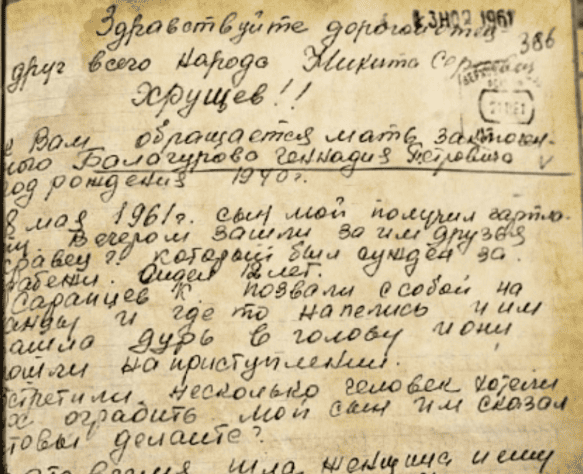 Здравствуйте дорогой отец
13 НОЯ 1961
386
друг всего народа Никита Сер
Хрущев!!
к Вам обращается мать заключен-
ного Балагурова Геннадия Петровича
год рождения 1940 г.
8 мая 1961 г. сын мой получил зарпла-
ту. Вечером зашли за им друзья
г. который был сужден за
Сидел 12 лет.
Саранцев К. позвали с собой на
танцы и где то напелись и им
зашла дурь в голову и они
пошли на приступлении.
встретили несколько человек хотели
их ограбить мой сын им сказал
что вы делаите?
в это время шла женщина и ему